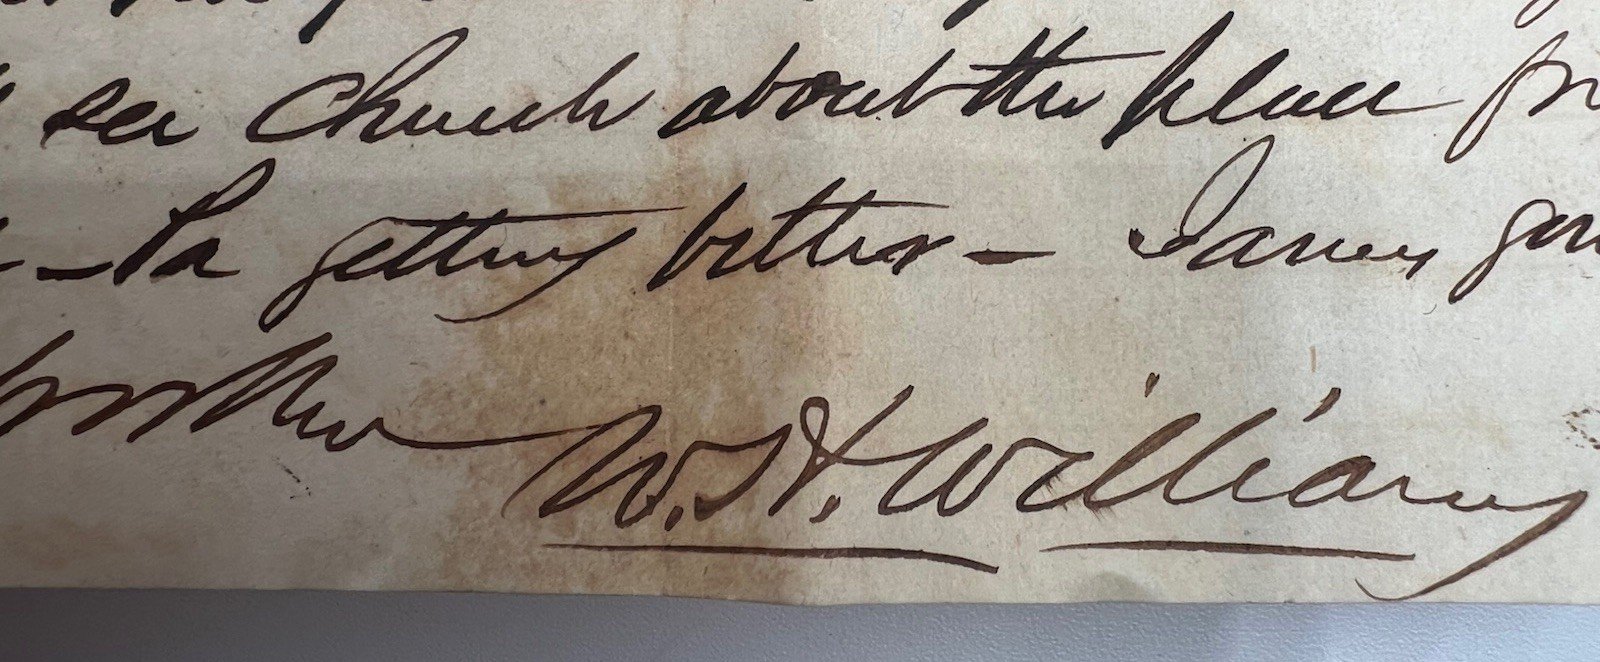 see Church about the place
- Pa getting better -
brother W. H. Williams